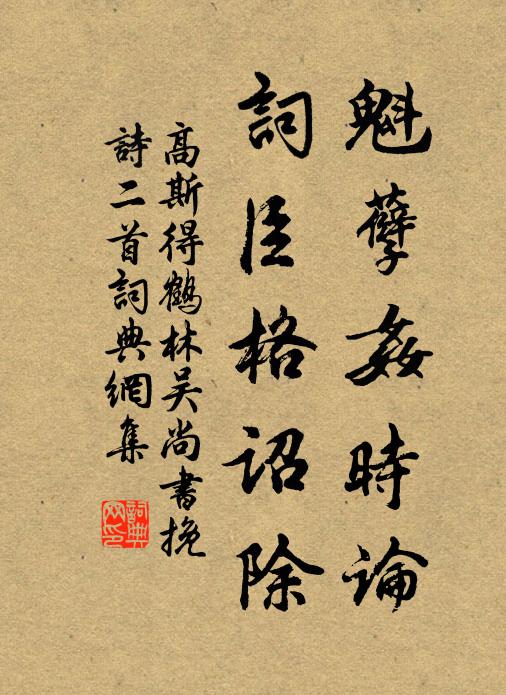 魁孽姦時論
詞臣格詔除
高斯得鶴林吴尚書挽
詩二首詞典網集
詞典網印